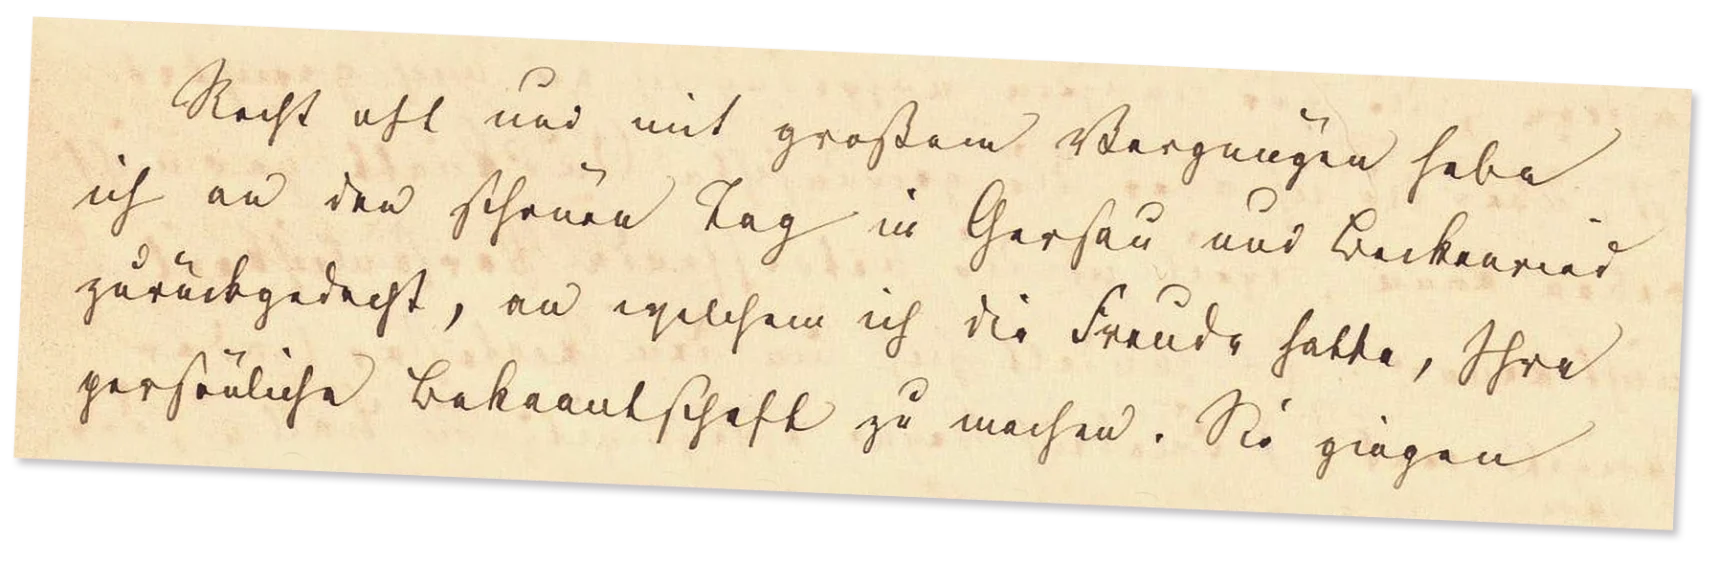 Recht oft und mit großem Vergnügen habe
ich an den schönen Tag in Gersau und Beckenried
zurückgedacht, an welchem ich die Freude hatte, Ihre
persönliche Bekanntschaft zu machen. Sie gingen